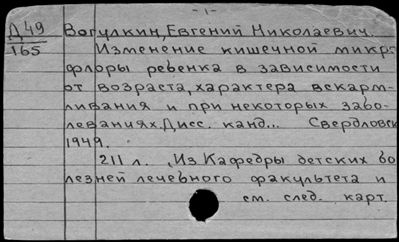 - 1 -
Д 49 Вогулкин, Евгений Николаевич.
165 Изменение кишечной микро
флоры ребенка в зависимости
от возраста, характера вскарм-
ливания и при некоторых забо-
леваниях. Дисс. канд... Свердловск
1949.
211 л. (Из Кафедры детских бо
лезней лечебного факультета и
см. след. карт.